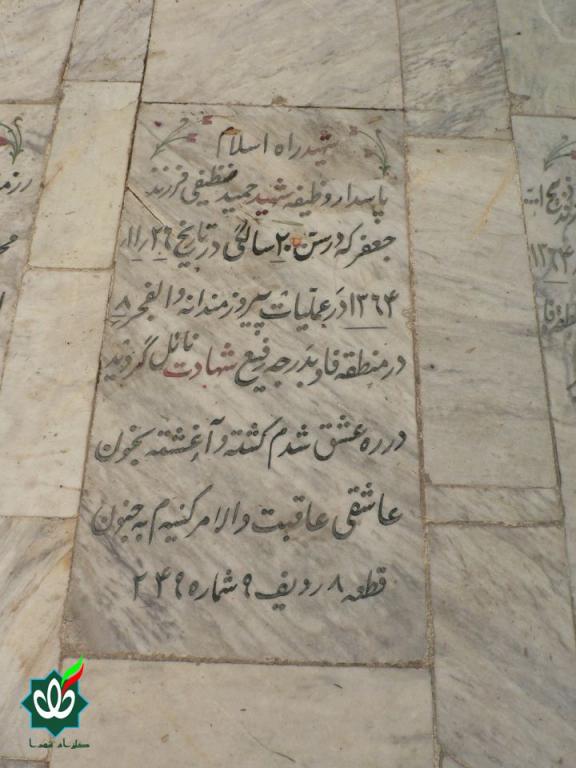 شهید راه اسلام
پاسدار وظیفه شهید حمید نظیفی فرزند
جعفر که در سن ۲۰ سالگی در تاریخ ۱۱٫۲۶
۱۳۶۴ در عملیات پیروزمندانه والفجر ۸
در منطقه فاو بدرجه رفیع شهادت نائل گردید
در ره عشق شدم کشته و آغشته بخون
عاشقی عاقبت والامر کشیدم به جنون
قطعه ۸ ردیف ۹ شماره ۲۴۹
گلزار شهدا